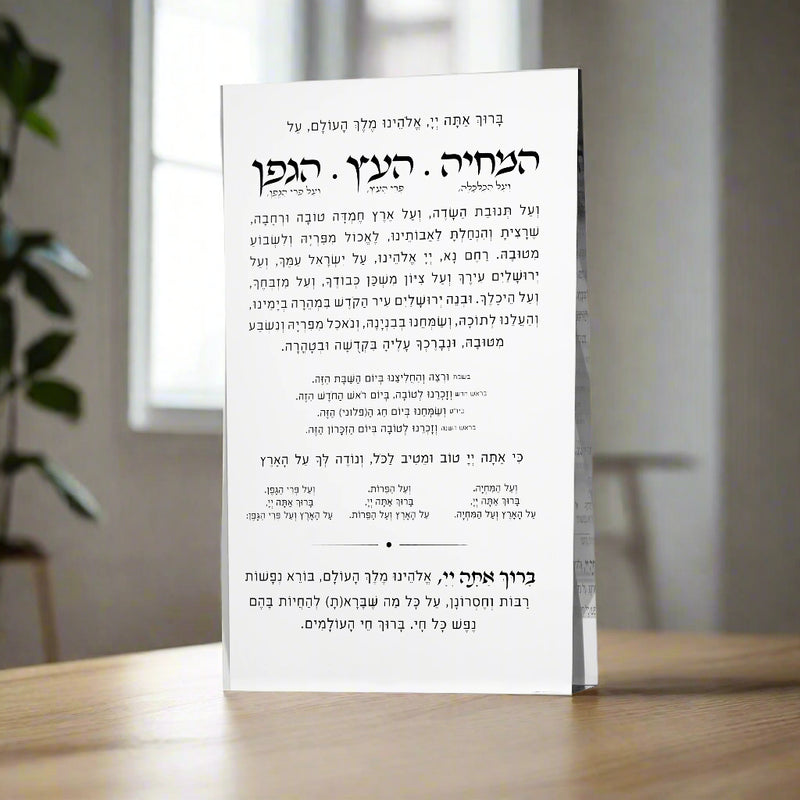 בָּרוּךְ אַתָּה יְיָ, אֱלֹהֵינוּ מֶלֶךְ הָעוֹלָם, עַל
המחיה . העץ . הגפן
ועַל הַכַּלְכָּלָה, פְּרִי הָעֵץ, ועַל פְּרִי הַגֶּפֶן,
וְעַל תְּנוּבַת הַשָּׂדֶה, וְעַל אֶרֶץ חֶמְדָּה טוֹבָה וּרְחָבָה,
שֶׁרָצִיתָ וְהִנְחַלְתָּ לַאֲבוֹתֵינוּ, לֶאֱכוֹל מִפִּרְיָהּ וְלִשְׂבּוֹעַ
מִטּוּבָהּ. רַחֵם נָא, יְיָ אֱלֹהֵינוּ, עַל יִשְׂרָאֵל עַמֶּךָ, וְעַל
יְרוּשָׁלַיִם עִירֶךָ וְעַל צִיּוֹן מִשְׁכַּן כְּבוֹדֶךָ, וְעַל מִזְבְּחֶךָ,
וְעַל הֵיכָלֶךָ. וּבְנֵה יְרוּשָׁלַיִם עִיר הַקֹּדֶשׁ בִּמְהֵרָה בְיָמֵינוּ,
וְהַעֲלֵנוּ לְתוֹכָהּ, וְשַׂמְּחֵנוּ בְּבִנְיָנָהּ, וְנֹאכַל מִפִּרְיָהּ וְנִשְׂבַּע
מִטּוּבָהּ, וּנְבָרֶכְךָ עָלֶיהָ בִּקְדֻשָּׁה וּבְטָהֳרָה.
בשבת וּרְצֵה וְהַחֲלִיצֵנוּ בְּיוֹם הַשַּׁבָּת הַזֶּה.
בראש חודש וְזָכְרֵנוּ לְטוֹבָה, בְּיוֹם רֹאשׁ הַחֹדֶשׁ הַזֶּה.
ביו״ט וְשַׂמְּחֵנוּ בְּיוֹם חַג הַ(פלוני) הַזֶּה.
בראש השנה וְזָכְרֵנוּ לְטוֹבָה בְּיוֹם הַזִּכָּרוֹן הַזֶּה.
כִּי אַתָּה יְיָ טוֹב וּמֵטִיב לַכֹּל, וְנוֹדֶה לְּךָ עַל הָאָרֶץ
וְעַל הַמִּחְיָה. וְעַל הַפֵּרוֹת. וְעַל פְּרִי הַגֶּפֶן.
בָּרוּךְ אַתָּה יְיָ, בָּרוּךְ אַתָּה יְיָ, בָּרוּךְ אַתָּה יְיָ,
עַל הָאָרֶץ וְעַל הַמִּחְיָה. עַל הָאָרֶץ וְעַל הַפֵּרוֹת. עַל הָאָרֶץ וְעַל פְּרִי הַגֶּפֶן:
בָּרוּךְ אַתָּה יְיָ, אֱלֹהֵינוּ מֶלֶךְ הָעוֹלָם, בּוֹרֵא נְפָשׁוֹת
רַבּוֹת וְחֶסְרוֹנָן, עַל כָּל מַה שֶּׁבָּרָא(תָ) לְהַחֲיוֹת בָּהֶם
נֶפֶשׁ כָּל חָי. בָּרוּךְ חֵי הָעוֹלָמִים.